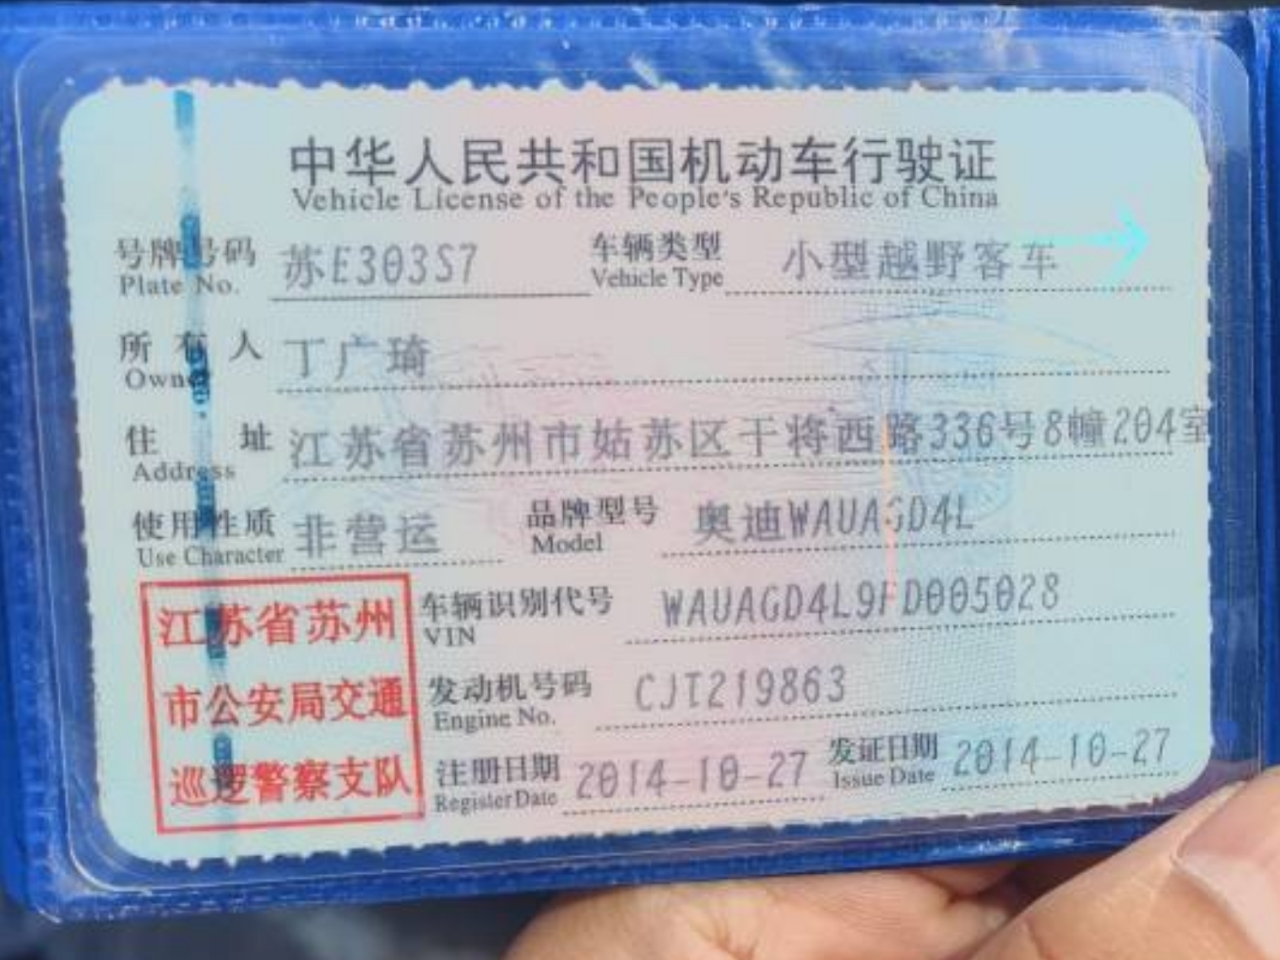 中华人民共和国机动车行驶证
Vehicle License of the People's Republic of China
号牌号码 苏E303S7 车辆类型 小型越野客车
Plate No. Vehicle Type
所有人 丁广琦
Owner
住址 江苏省苏州市姑苏区干将西路336号8幢204室
Address
使用性质 非营运 品牌型号 奥迪WAUAGD4L
Use Character Model
江苏省苏州
市公安局交通
巡逻警察支队
车辆识别代号 WAUAGD4L9FD005028
VIN
发动机号码 CJT219863
Engine No.
注册日期 2014-10-27 发证日期 2014-10-27
Register Date Issue Date